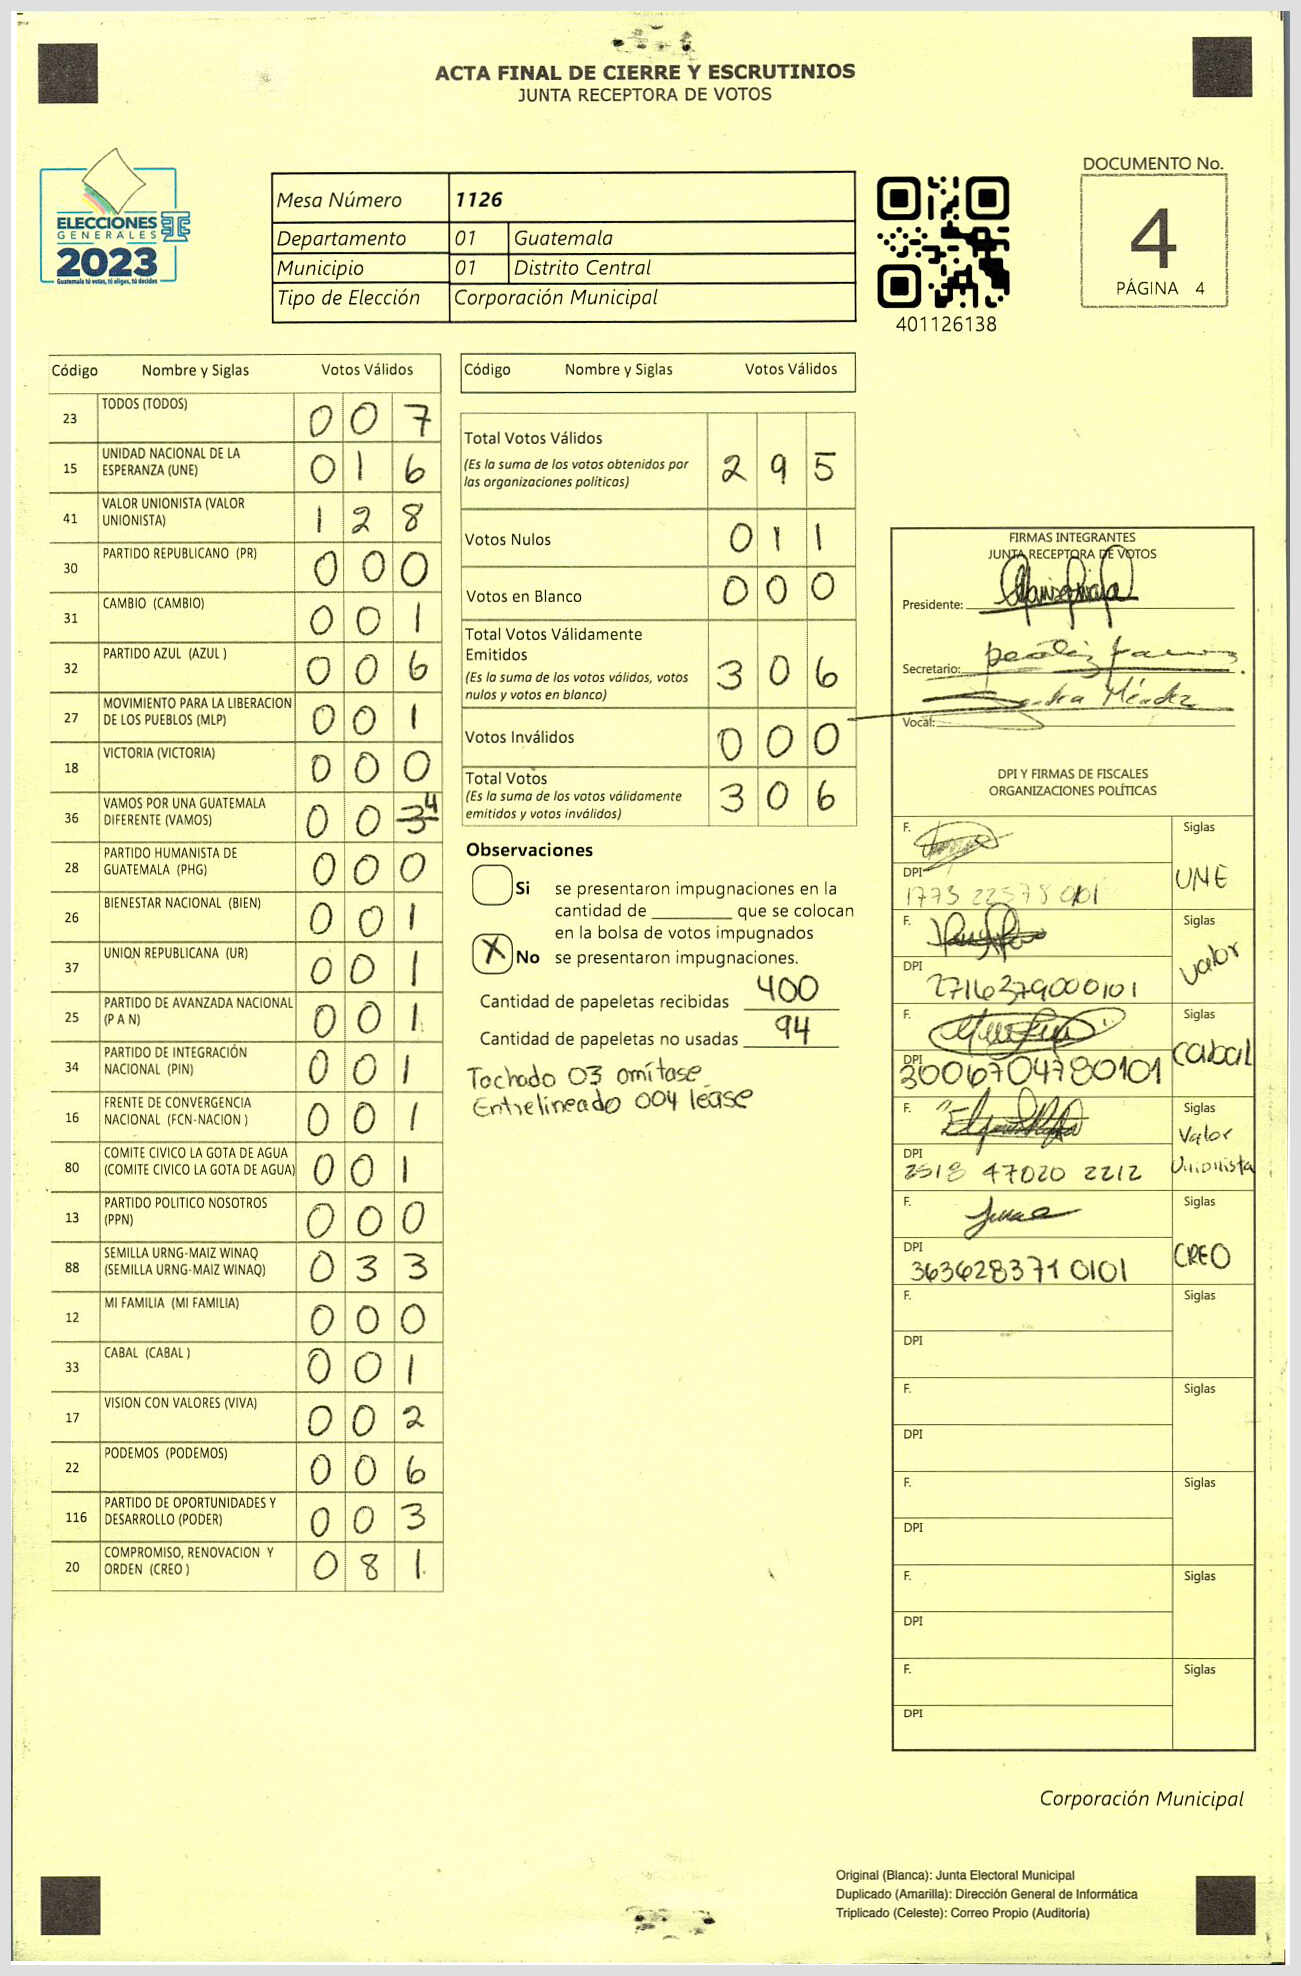 ACTA FINAL DE CIERRE Y ESCRUTINIOS
JUNTA RECEPTORA DE VOTOS
ELECCIONES
GENERALES
2023
Guatemala tú votas, tú eliges, tú decides
Mesa Número 1126
Departamento 01 Guatemala
Municipio 01 Distrito Central
Tipo de Elección Corporación Municipal
401126138
DOCUMENTO No.
4
PÁGINA 4
Código Nombre y Siglas Votos Válidos
23 TODOS (TODOS) 0 0 7
15 UNIDAD NACIONAL DE LA
ESPERANZA (UNE) 0 1 6
41 VALOR UNIONISTA (VALOR
UNIONISTA) 1 2 8
30 PARTIDO REPUBLICANO (PR) 0 0 0
31 CAMBIO (CAMBIO) 0 0 1
32 PARTIDO AZUL (AZUL ) 0 0 6
27 MOVIMIENTO PARA LA LIBERACION
DE LOS PUEBLOS (MLP) 0 0 1
18 VICTORIA (VICTORIA) 0 0 0
36 VAMOS POR UNA GUATEMALA
DIFERENTE (VAMOS) 0 0 3 4
28 PARTIDO HUMANISTA DE
GUATEMALA (PHG) 0 0 0
26 BIENESTAR NACIONAL (BIEN) 0 0 1
37 UNION REPUBLICANA (UR) 0 0 1
25 PARTIDO DE AVANZADA NACIONAL
(P A N) 0 0 1
34 PARTIDO DE INTEGRACIÓN
NACIONAL (PIN) 0 0 1
16 FRENTE DE CONVERGENCIA
NACIONAL (FCN-NACION ) 0 0 1
80 COMITE CIVICO LA GOTA DE AGUA
(COMITE CIVICO LA GOTA DE AGUA) 0 0 1
13 PARTIDO POLITICO NOSOTROS
(PPN) 0 0 0
88 SEMILLA URNG-MAIZ WINAQ
(SEMILLA URNG-MAIZ WINAQ) 0 3 3
12 MI FAMILIA (MI FAMILIA) 0 0 0
33 CABAL (CABAL ) 0 0 1
17 VISION CON VALORES (VIVA) 0 0 2
22 PODEMOS (PODEMOS) 0 0 6
116 PARTIDO DE OPORTUNIDADES Y
DESARROLLO (PODER) 0 0 3
20 COMPROMISO, RENOVACION Y
ORDEN (CREO ) 0 8 1
Código Nombre y Siglas Votos Válidos
Total Votos Válidos
(Es la suma de los votos obtenidos por
las organizaciones políticas) 2 9 5
Votos Nulos 0 1 1
Votos en Blanco 0 0 0
Total Votos Válidamente
Emitidos
(Es la suma de los votos válidos, votos
nulos y votos en blanco) 3 0 6
Votos Inválidos 0 0 0
Total Votos
(Es la suma de los votos válidamente
emitidos y votos inválidos) 3 0 6
Observaciones
Si se presentaron impugnaciones en la
cantidad de ________ que se colocan
en la bolsa de votos impugnados
X No se presentaron impugnaciones.
Cantidad de papeletas recibidas 400
Cantidad de papeletas no usadas 94
Tachado 03 omítase
Entrelineado 004 léase
FIRMAS INTEGRANTES
JUNTA RECEPTORA DE VOTOS
Presidente:
Secretario:
Méndez
Vocal:
DPI Y FIRMAS DE FISCALES
ORGANIZACIONES POLÍTICAS
F. Siglas
UNE
DPI
1773 22578 0101
F. Siglas
Valor
DPI
2716379000101
F. Siglas
Cabal
DPI
3006704780101
F. Siglas
Valor
Unionista
DPI
2518 47020 2212
F. Siglas
CREO
DPI
3636283710101
F. Siglas
DPI
F. Siglas
DPI
F. Siglas
DPI
F. Siglas
DPI
F. Siglas
DPI
Corporación Municipal
Original (Blanca): Junta Electoral Municipal
Duplicado (Amarilla): Dirección General de Informática
Triplicado (Celeste): Correo Propio (Auditoría)